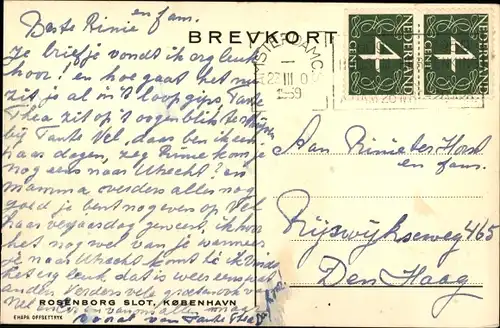 Beste Rinie en fam.
Je briefje vondt ik erg leuk
hoor! en hoe gaat het nu
zit je al in 't loopgips, Tante
Thea zit op 't oogenblik te
bij Tante Vel, daar ben ik een
paar dagen, zeg Rinie kom je
nog eens naar Utrecht? en
mamma overders alles nog
goed je bent nog even op Vel
haar verjaardag geweest, ik hoor
het nog wel van je wanneer
je naar huis komt ik vind
het erg leuk, dat is weer eens wat
anders verders vele groetens van
Vel
vooral van Tante Thea
BREVKORT
AMSTERDAM C.S.
III
1959
NEDERLAND
4
CENT
NEDERLAND
4
CENT
Aan Rinie ter Horst
en fam.
Rijswijkseweg 465
Den Haag
ROSENBORG SLOT, KØBENHAVN
ENAPA OFFSETTRYK